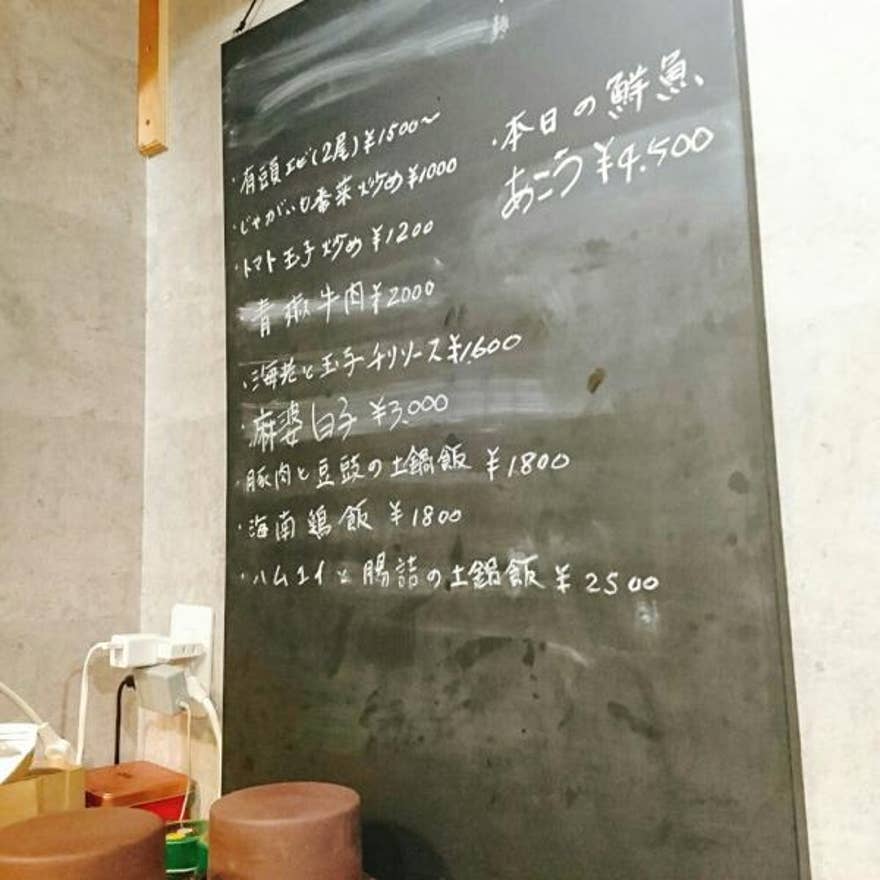 ・有頭エビ(2尾)¥1500〜
・じゃがいも香菜炒め¥1000
・トマト玉子炒め¥1200
・青椒牛肉¥2000
・海老と玉子チリソース¥1,600
・麻婆白子¥3,000
・豚肉と豆豉の土鍋飯 ¥1800
・海南鶏飯 ¥1800
・ハムユイと腸詰の土鍋飯 ¥2500
・本日の鮮魚、
あこう¥4,500